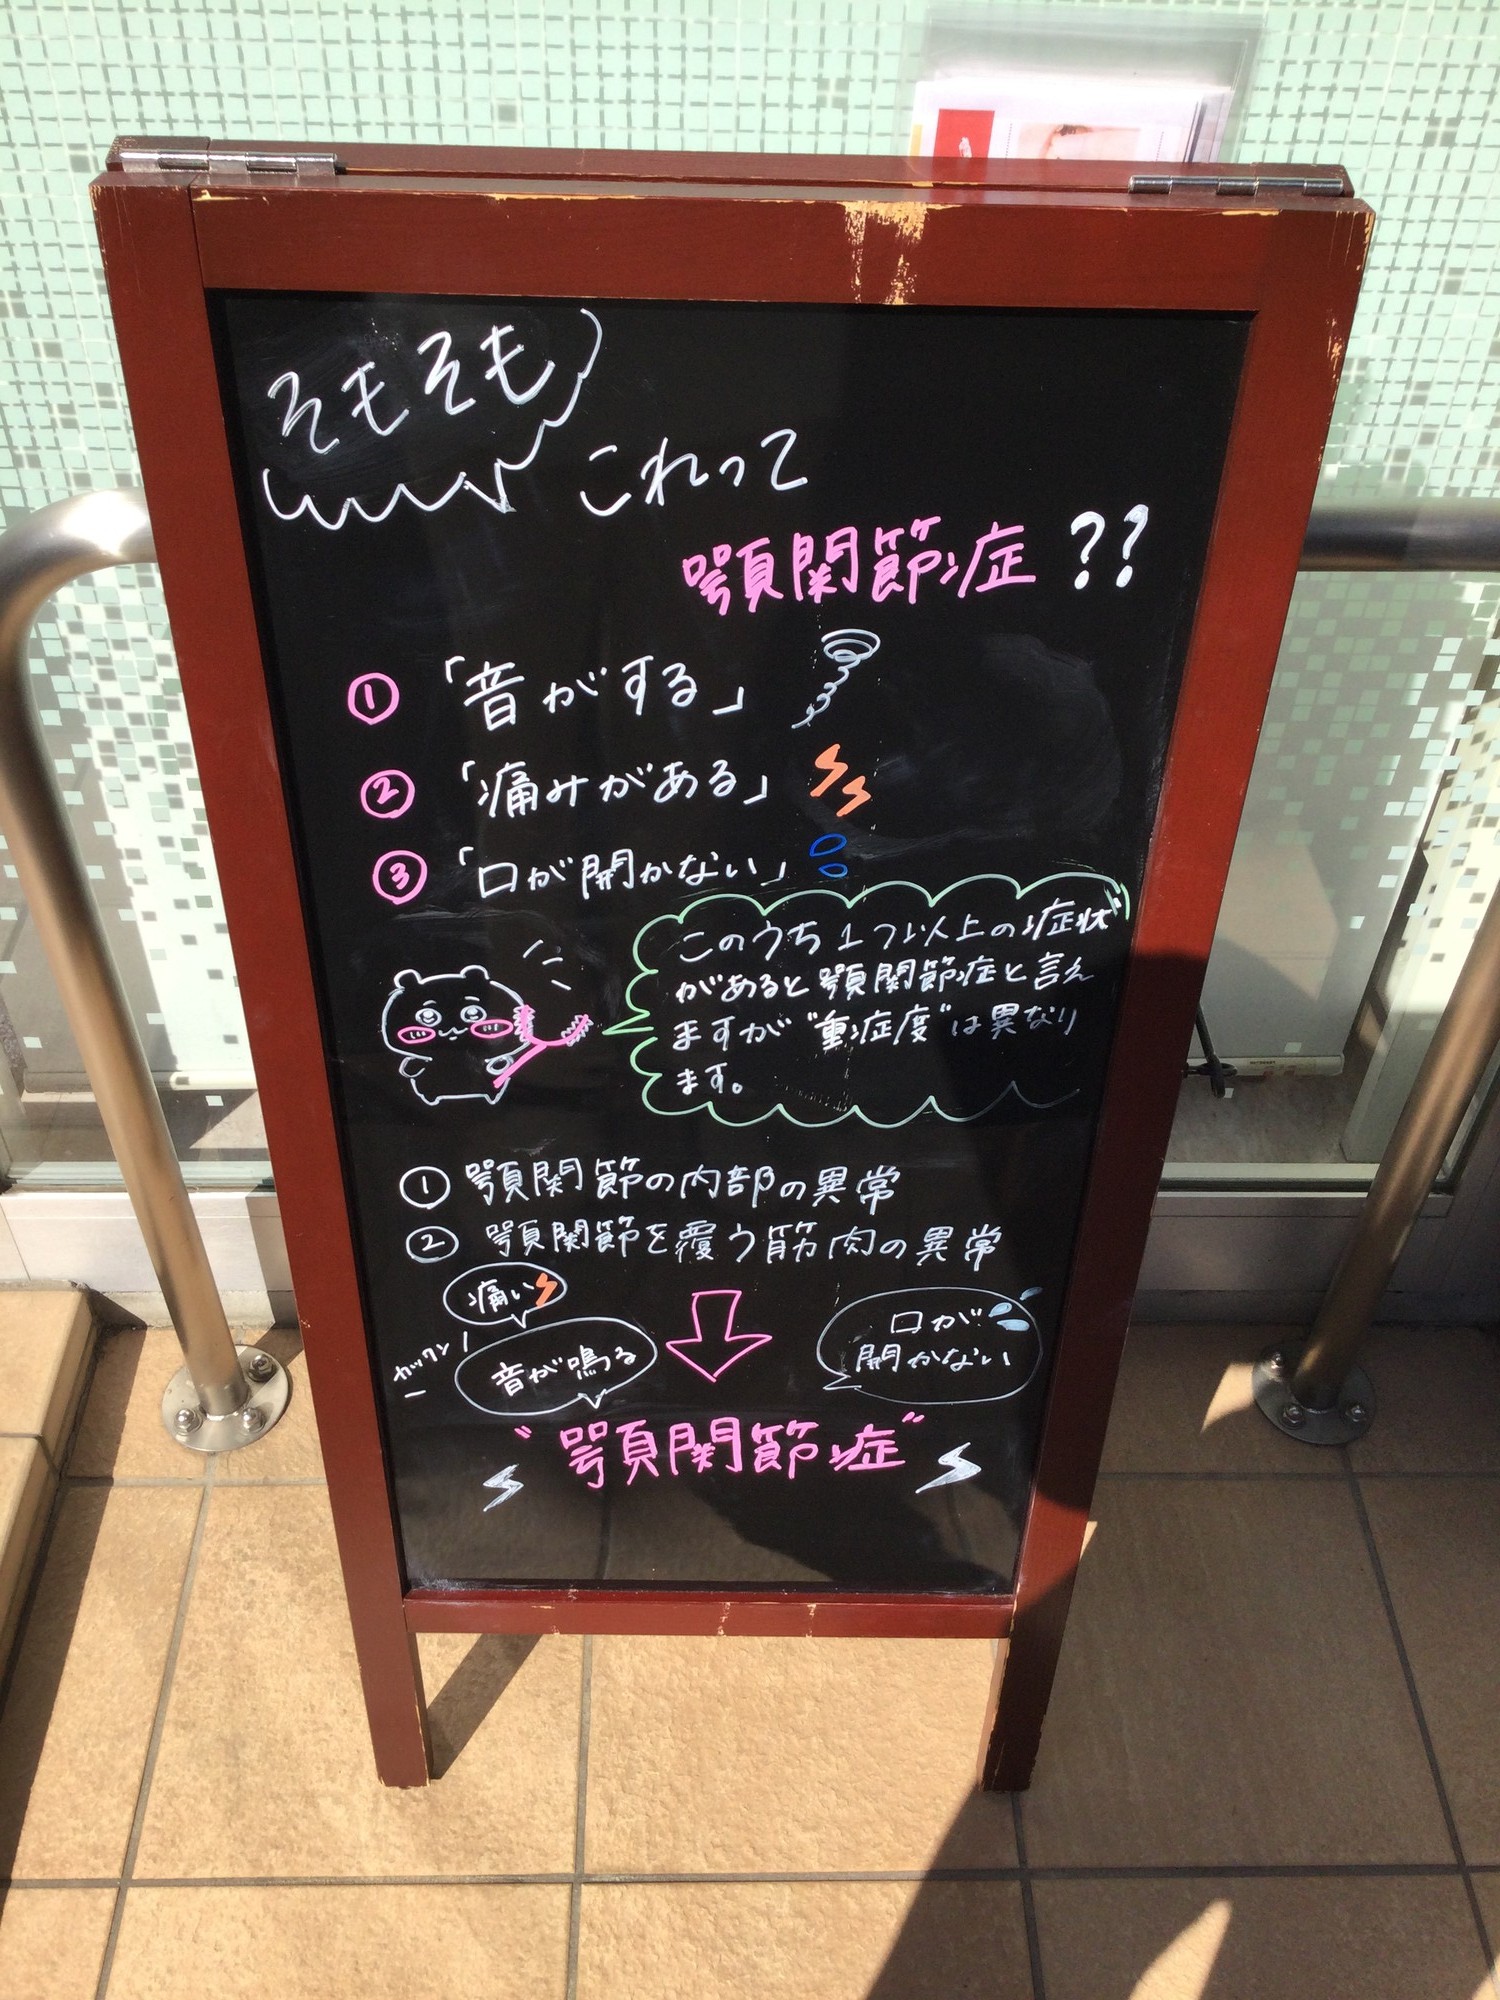 そもそも
これって
顎関節症??
① 「音がする」
② 「痛みがある」
③ 「口が開かない」
このうち1つ以上の症状
があると顎関節症と言え
ますが"重症度"は異なり
ます。
① 顎関節の内部の異常
② 顎関節を覆う筋肉の異常
痛い
カックン!
音が鳴る
口が
開かない
"顎関節症"